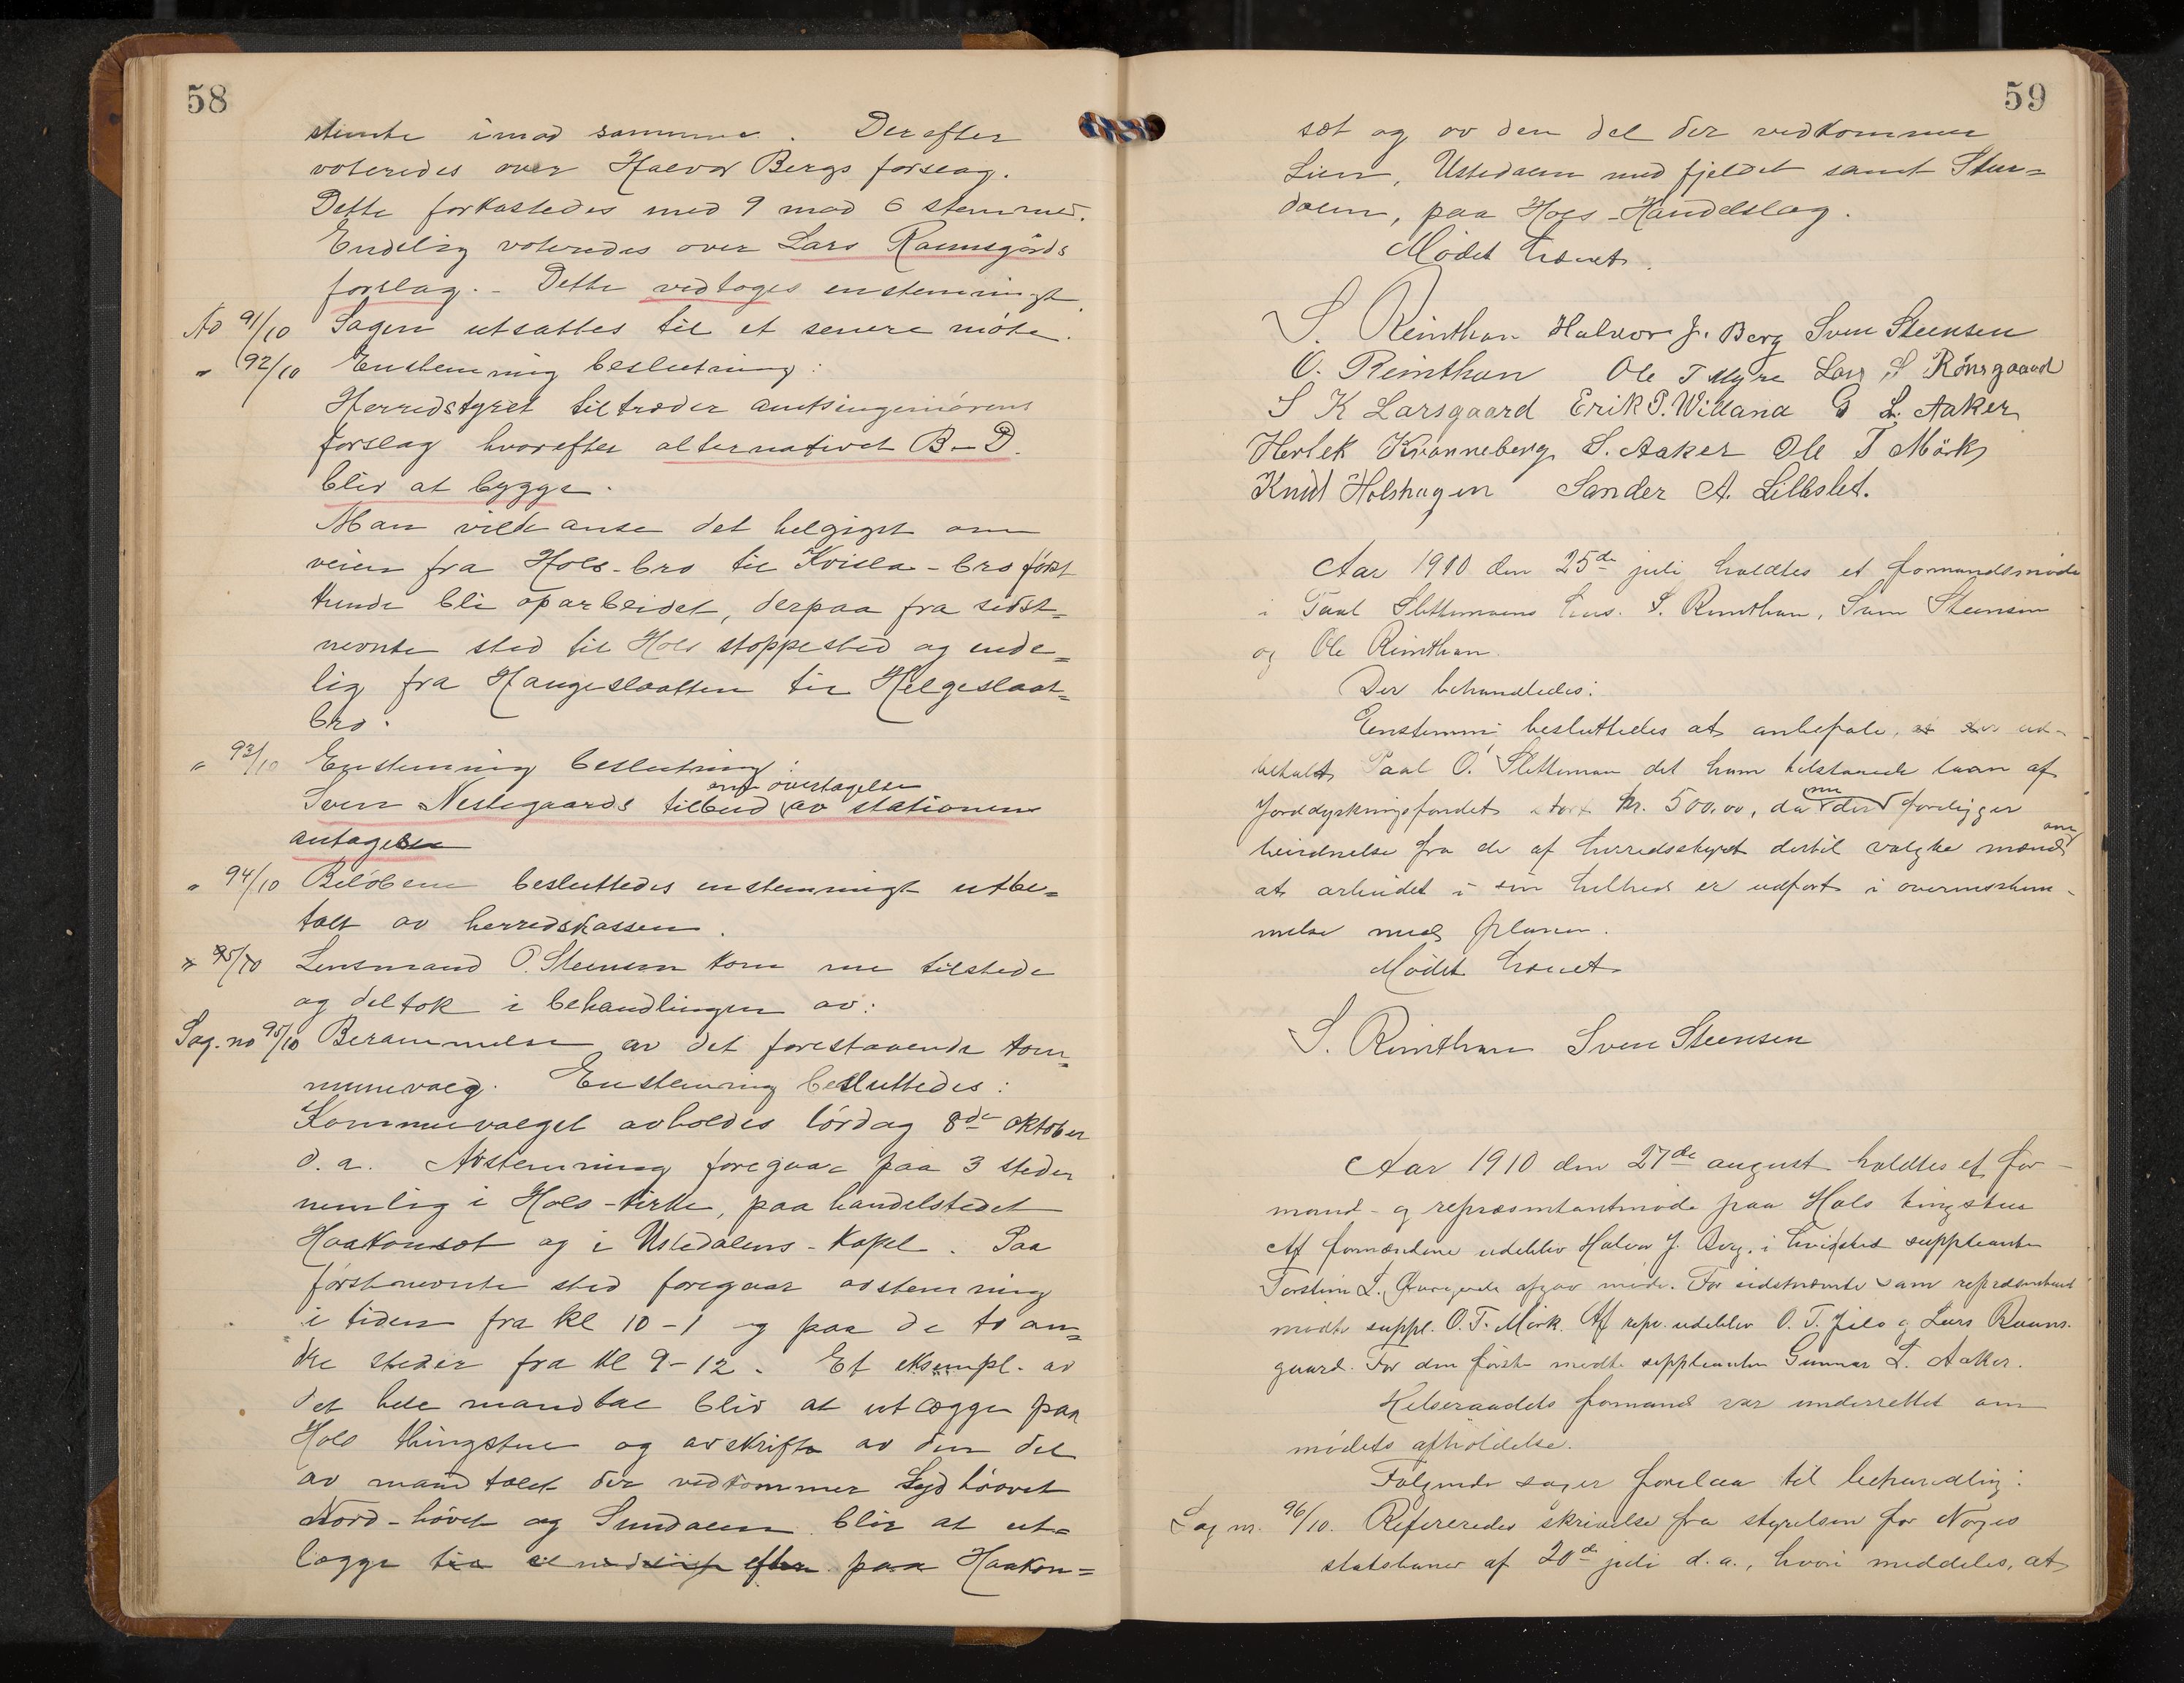 58
stemte imod samme. Derefter
voteredes over Halvor Bergs forslag.
Dette forkastedes med 9 mod 6 stemmer.
Endelig voteredes over Lars Raunsgårds
forslag. - Dette vedtoges enstemmigt.
No 91/10 Sagen utsattes til et senere møte.
" 92/10 Enstemmig beslutning:
Herredstyret tiltræder amtsingeniørens
forslag hvorefter alternativet B-D.
blir at bygge.
Man vilde anse det helgigst om
veien fra Hols-bro til Kvisla-bro først
kunde bli oparbeidet, derpaa fra sidst=
nevnte sted til Hols stoppested og ende=
lig fra Haugeslaatten til Helgeslaat=
bro.
" 93/10 Enstemmig beslutning:
om overtagelse
Sven Nestegaards tilbud av stationen
antages
" 94/10 Beløbene besluttedes enstemmigt utbe=
talt av herredskassen.
" 95/10 Lensmand O. Steensen kom nu tilstede
og deltok i behandlingen av:
Sag. no 95/10 Berammelse av det forestaaende kom=
munevalg. Enstemmig besluttedes:
Kommunevalget avholdes lørdag 8de oktober
d.a. Avstemning foregaar paa 3 steder
nemlig i Hols-kirke, paa handelstedet
Haakonset og i Ustedalens-Kapel. Paa
førstnevnte sted foregaar avstemning
i tiden fra kl 10-1 og paa de to an=
dre steder fra kl 9-12. Et eksempl. av
det hele mandtal blir at utlægge paa
Hols thingstue og avskrifte av den del
av mandtalet der vedkommer Syd høvet
Nord-høvet og Sundalen blir at ut=
lægge paa Haakon=
59
set og av den del der vedkommer
Lien, Ustedalen med fjeldet samt Skur=
dalen, paa Hols-Handelslag.
Mødet hævet.
S. Reinthon Halvor J. Berg Sven Steensen
O. Reinthon Ole T Myre Lars S Rønsgaard
S K Larsgaard Erik P. Willand G L. Aaker
Herlek Kvanneberg S. Aaker Ole T Mørk
Knut Holshagen Sander A. Lilleslet.
Aar 1910 den 25de juli holdtes et formandsmøde
i Paal Slettemoens hus. S. Reinthon, Sven Steensen
og Ole Reinthon.
Der behandledes:
Eenstemmi besluttedes at anbefale, ud-
betalt Paal O. Slettemoen det ham tilstaaede laan af
Jorddyrkningsfondet stort Kr. 500,00, da der nu foreligger
bevidnelse fra de af herredsstyret dertil valgte mænd om
at arbeidet i sin helhed er udført i overensstem-
melse med planen.
Mødet hævet
S. Reinthon Sven Steensen
Aar 1910 den 27de august holdtes et for-
mand- og repræsentantmøde paa Hols tingstue
Af formændene udeblev Halvor J. Berg, i hvis sted suppleanten
Torstein L. afgav møde. For sidstnævnte som repræsentant
mødte suppl. O. T. Mørk. Af repr. udeblev O. T. Jelo og Lars Rauns-
gaard. For den første mødte suppleanten Gunnar L. Aaker.
Helseraadets formand var underrettet om
mødets afholdelse.
Følgende sager forelaa til behandling:
Sag nr. 96/10. Refereredes skrivelse fra styrelsen for Norges
statsbaner af 20de juli d.a., hvori meddeles, at